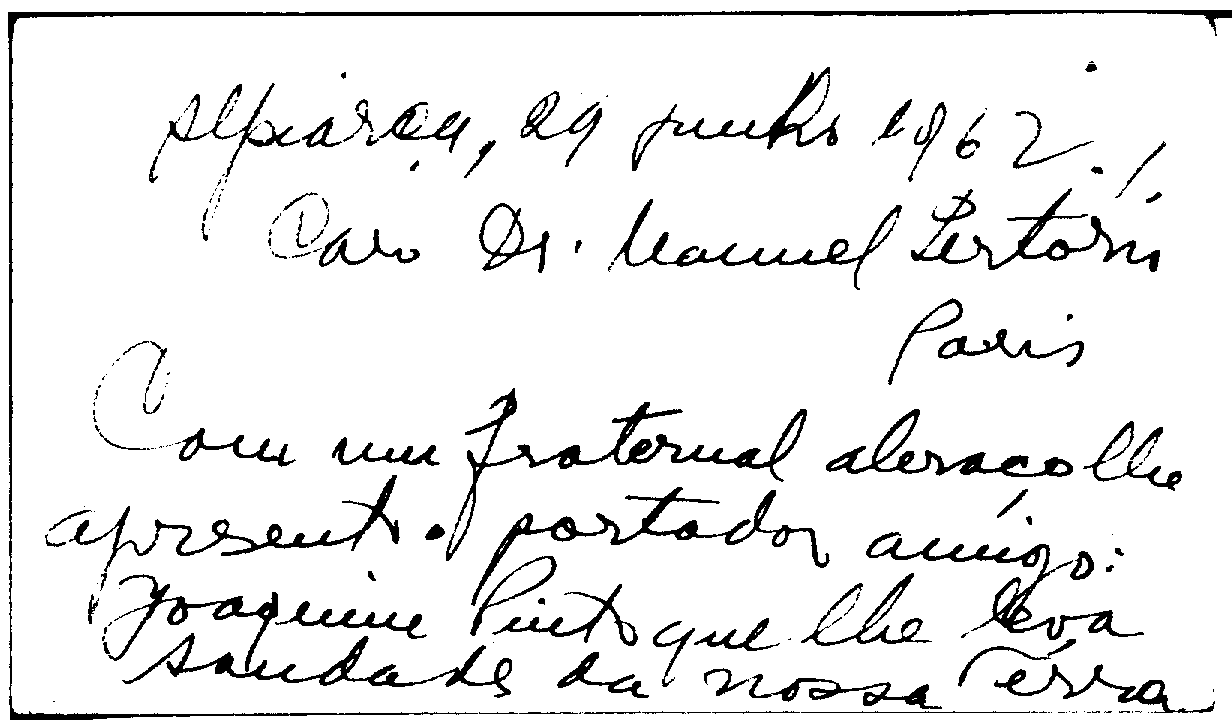 Alpiarça, 29 junho 1962./.
Caro Dr. Manuel Sertório
Paris
Com um fraternal abraço lhe
apresento o portador amigo:
Joaquim Pinto que lhe leva
saudades da nossa Terra